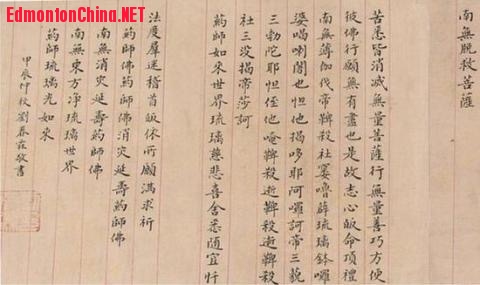 EdmontonChina.NET
南無脫救菩薩
苦悉皆消滅無量菩薩行無量善巧方便
彼佛行願無有盡也是故志心皈命頂禮
南無薄伽伐帝鞞殺社窶嚕薜琉璃鉢囉
婆喝囉闍也怛他揭多耶阿囉訶帝三藐
三勃陀耶怛侄他唵鞞殺逝鞞殺逝鞞殺
社三沒揭帝莎訶
藥師如來世界琉璃慈悲喜舍悉隨宜忏
法度羣迷稽首皈依所願滿求祈
藥師佛藥師佛消災延壽藥師佛
南無消災延壽藥師佛
南無東方净琉璃世界
藥師琉璃光如來
甲辰仲秋劉春霖敬書